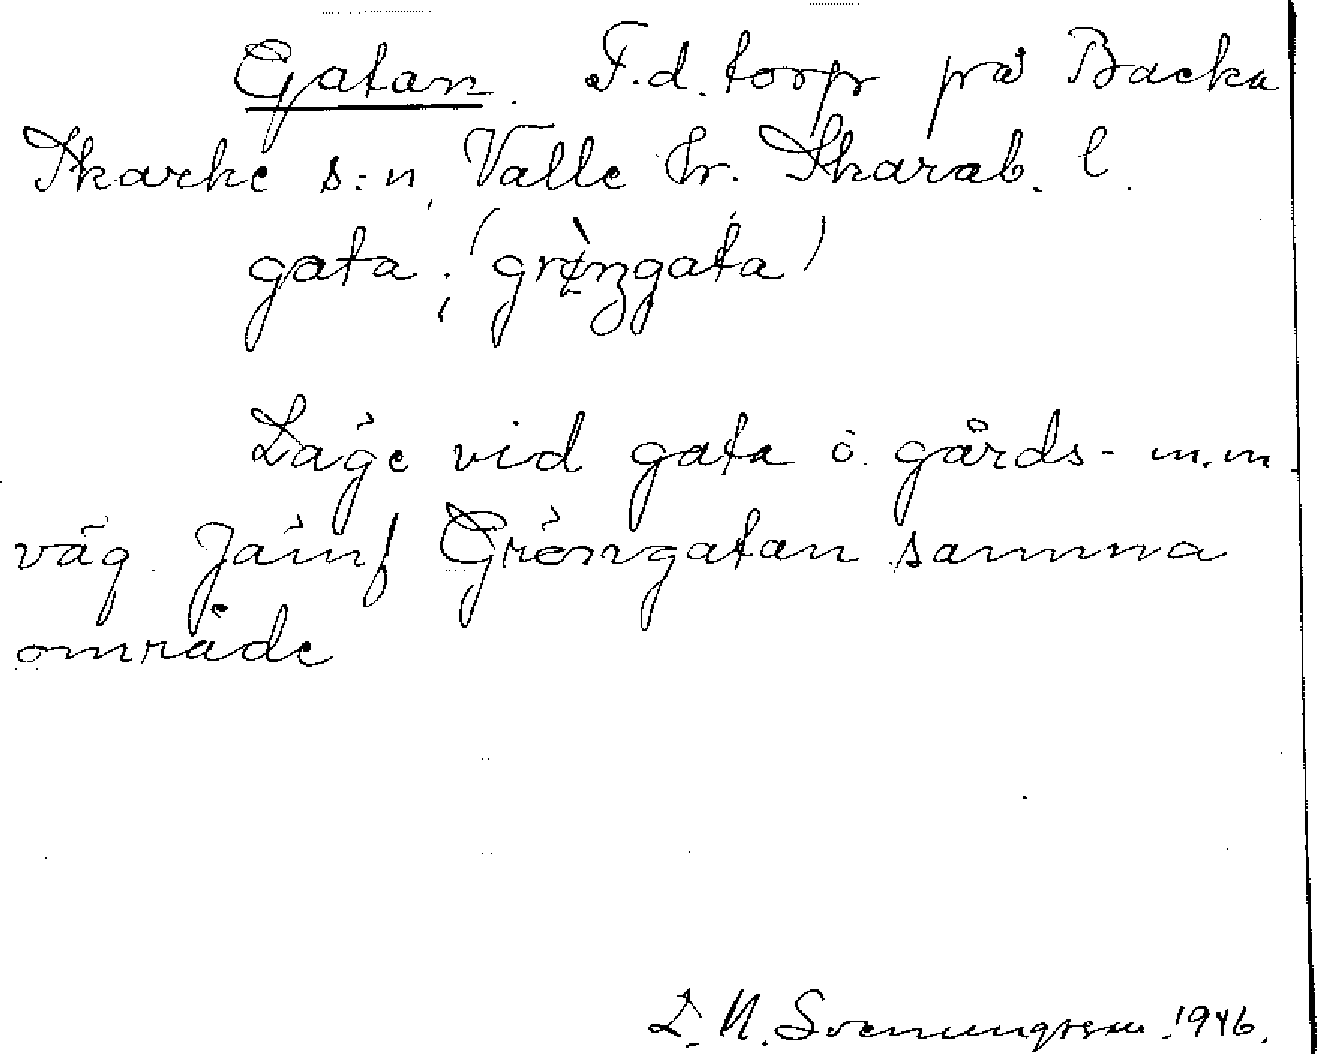 Gatan. F.d. torp på Backa
Skarke s:n, Valle hr. Skarab. l.
gata; (grø̀ngata)
Läge vid gata o. gårds- m.m
väg. Jämf Gröngatan samma
område
L. N. Svenungsson. 1946.